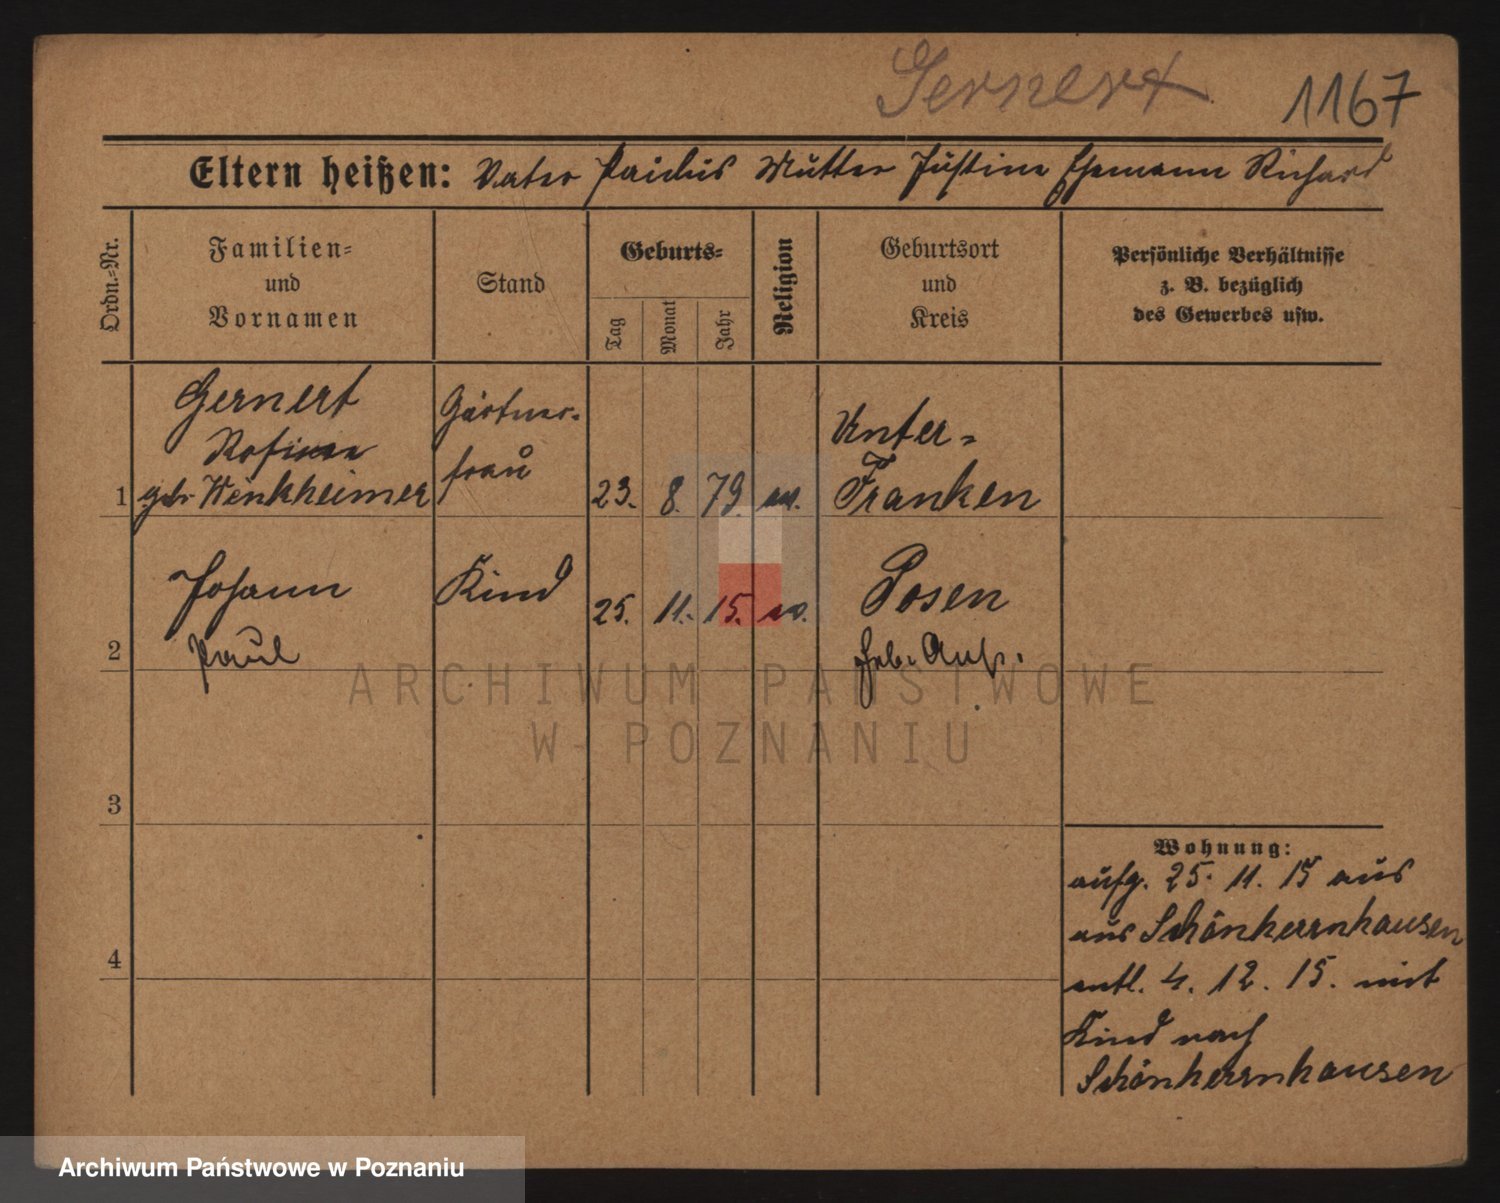 Gernert 1167
Eltern heißen: Vater Paulus Mutter Justine Ehemann Richard
Ordn.=Nr.
Familien=
und
Vornamen
Stand
Geburts=
Tag
Monat
Jahr
Religion
Geburtsort
und
Kreis
Persönliche Verhältnisse
z. B. bezüglich
des Gewerbes usw.
1
Gernert
Rosina
geb. Wenkheimer
Gärtner-
frau
23. 8. 79. ev.
Unter-
Franken
2
Johann
Paul
Kind
25. 11. 15. ev.
Posen
Heb. Anst.
3
4
Wohnung:
aufg. 25. 11. 15 aus
aus Schönherrnhausen
entl. 4. 12. 15. mit
Kind nach
Schönherrnhausen
ARCHIWUM PAŃSTWOWE
W POZNANIU
Archiwum Państwowe w Poznaniu